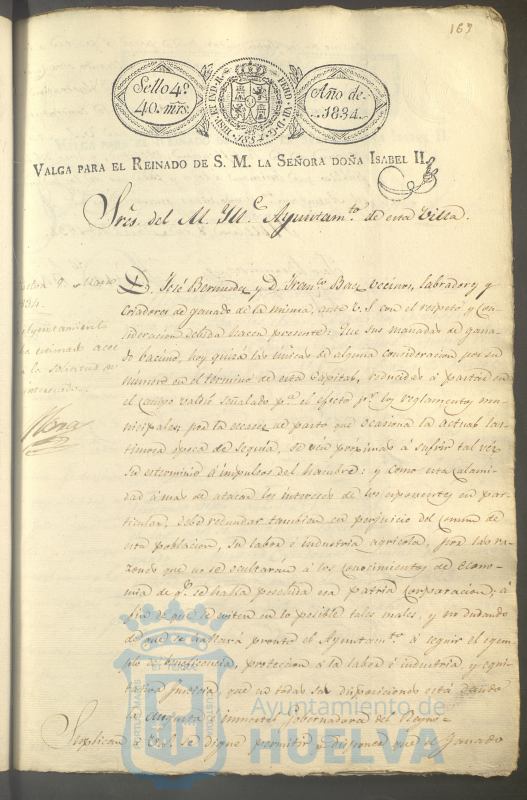 169
Sello 4º
40. mrs.
HISP. ET IND. R. FERD. VII. D. G.
Año de
1834.
VALGA PARA EL REINADO DE S. M. LA SEÑORA DOÑA ISABEL II.
Sres. del M. Ille. Ayuntamto. de esta Villa.
D. José Bermudez y D. Franco. Baez vecinos, labradores y
Criadores de ganado de la misma, ante V.S. con el respeto y con-
sideracion debida hacen presente: Que sus manadas de gana-
do bacuno, hoy quizá las únicas de alguna consideracion por su
número en el término de esta Capital, reducidas á pastar en
el campo valdio señalado pa. el efecto pr. los reglamentos mu-
nicipales, por la escasez de pasto que ocasiona la actual las-
timosa época de sequia, se vén procsimas á sufrir tal vez
su esterminio á impulsos del hambre: y como esta calami-
dad á mas de atacar los intereses de los esponentes en par-
ticular, debe redundar tambien en perjuicio del comun de
esta poblacion, su labor é industria agricola, por las ra-
zones que no se ocultarán á los conocimientos de econo-
mia de qe. se halla poseida esa patria Corporacion; á
fin de que se eviten en lo posible tales males, y no dudando
de que se hallará pronto el Ayuntamto. á seguir el egem-
plo de beneficencia, proteccion á la labor é industria, y equi-
tativa justicia, que en todas sus disposiciones está dando
la Augusta é inmortal Gobernadora del Reyno=
Suplican á V.S. se digne permitir y disponer que el ganado
9. Mayo
834.
Ayuntamiento
la solicitud de
Ayuntamiento de
HUELVA